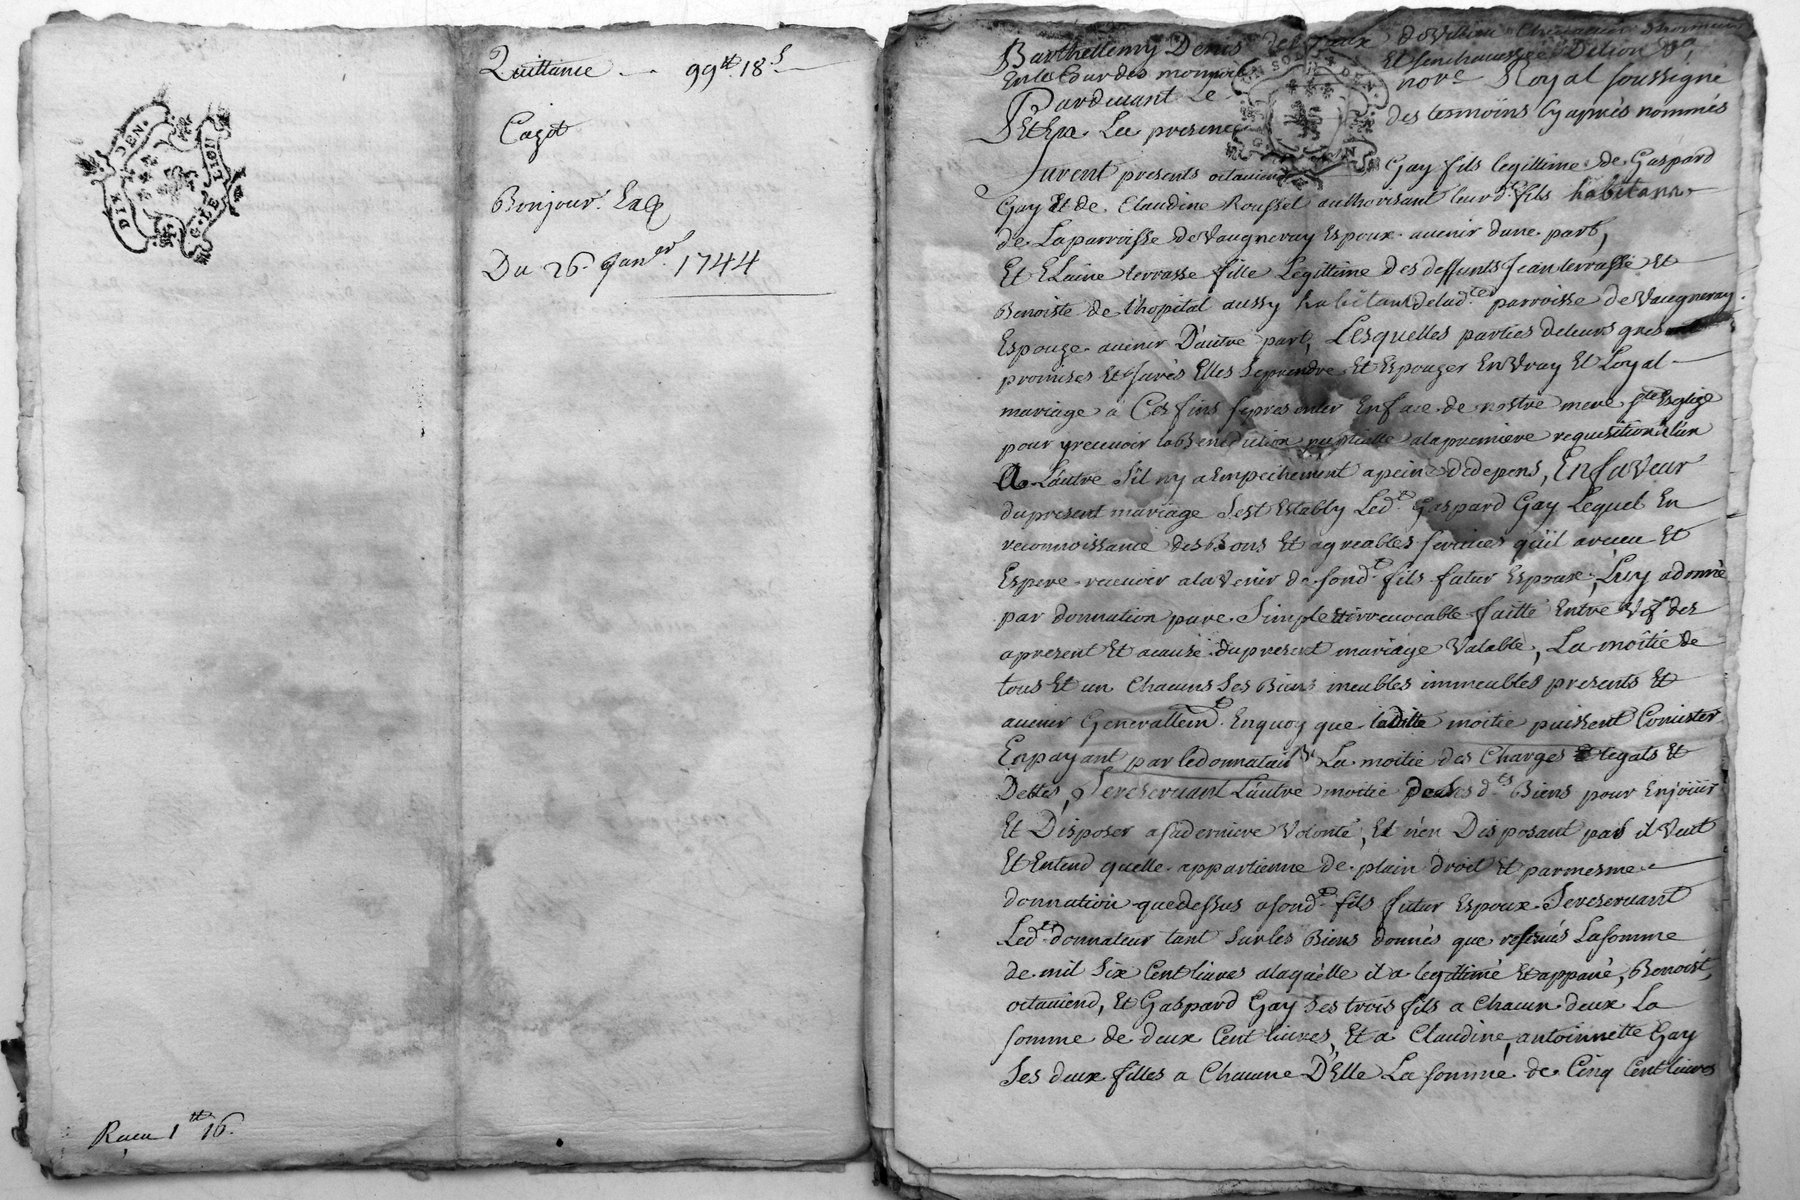 Quittance 99tt 18s
Cazot
Bonjour
Du 26. Janer 1744
DIX DEN.
G. LE LION
Receu 1tt 16.
Barthellemy Denis
Et senchaussée De Lion
En la Cour des monnoies
Pardevant Le nore Royal soussigné
Et En La presence des temoins cy après nommés
furent presents octaviend Gay fils legittime de Gaspard
Gay Et de Claudine Roussel authorisant leurd. fils habitans
de La parroisse de Vaugneray Espoux avenir dune part,
Et Elaine terrasse fille Legittime des deffunts Jean terrasse Et
Benoiste de lhopital aussy habitant deladte parroisse de Vaugneray
Espouze avenir D'autre part, Lesquelles parties deleurs grés
promises Et jurés Elles Se prendre Et Espouzer En Vray Et Loyal
mariage a Ces fins se presenter En face de nostre mere ste Esglize
pour y recevoir la benediction nuptialle a la premiere requisition de l'un
a Lautre S'il ny a Empechement a peine de depens, En faveur
du present mariage S'est Estably Ledt. Gaspard Gay Lequel En
reconnoissance des Bons Et agreables services qu'il a receu Et
Espere recevoir a lavenir de sondt. fils futur Espoux, Luy a donné
par donnation pure Simple Et irrevocable faitte Entre Vifs des
apresent Et a cause du present mariage Valable, La moitié de
tous Et un Chacuns Ses Biens meubles immeubles presents Et
avenir Generallemt. En quoy que laditte moitié puissent Conister
En payant par le donnataire La moitié des Charges legats Et
Dettes, Se reservant L'autre moitié de ses dts Biens pour En joüir
Et Disposer a sa derniere Volonté, Et n'en Disposant pas il Veut
Et Entend quelle appartienne de plain droit Et par mesme
donnation que dessus a sondt. fils futur Espoux Se reservant
Ledt. donnateur tant Sur les Biens donnés que reservés La somme
de mil Six Cent livres a laquelle il a legittimé Et appané, Benoist,
octaviend, Et Gaspard Gay Ses trois fils a Chacun deux La
somme de deux Cent livres, Et a Claudine, antoinette Gay
Ses deux filles a Chacune D'Elle La somme de Cinq Cent livres